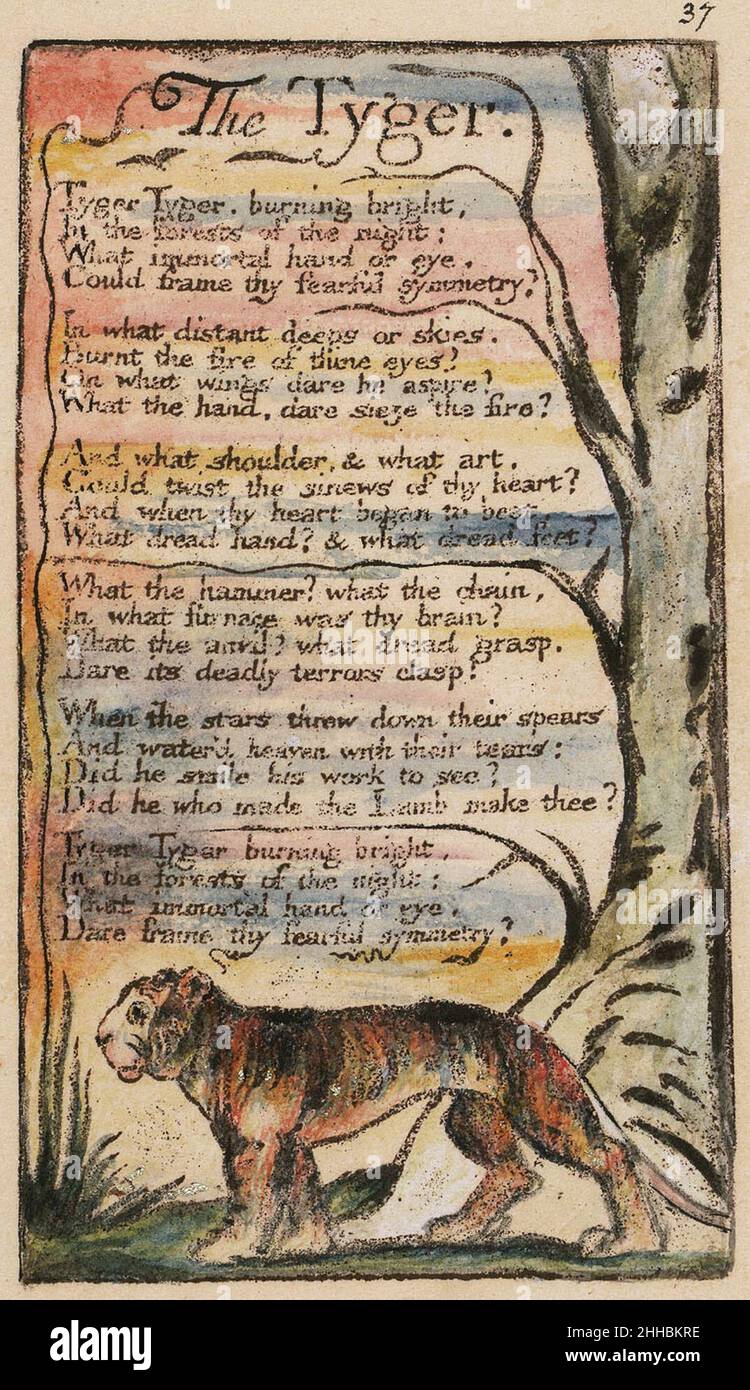 37
The Tyger.
Tyger Tyger. burning bright,
In the forests of the night:
What immortal hand or eye.
Could frame thy fearful symmetry?
In what distant deeps or skies.
Burnt the fire of thine eyes?
On what wings dare he aspire?
What the hand, dare sieze the fire?
And what shoulder, & what art,
Could twist the sinews of thy heart?
And when thy heart began to beat,
What dread hand? & what dread feet?
What the hammer? what the chain,
In what furnace was thy brain?
What the anvil? what dread grasp.
Dare its deadly terrors clasp!
When the stars threw down their spears
And water'd heaven with their tears:
Did he smile his work to see?
Did he who made the Lamb make thee?
Tyger Tyger burning bright,
In the forests of the night:
What immortal hand or eye,
Dare frame thy fearful symmetry?
alamy
Image ID: 2HHBKRE
www.alamy.com